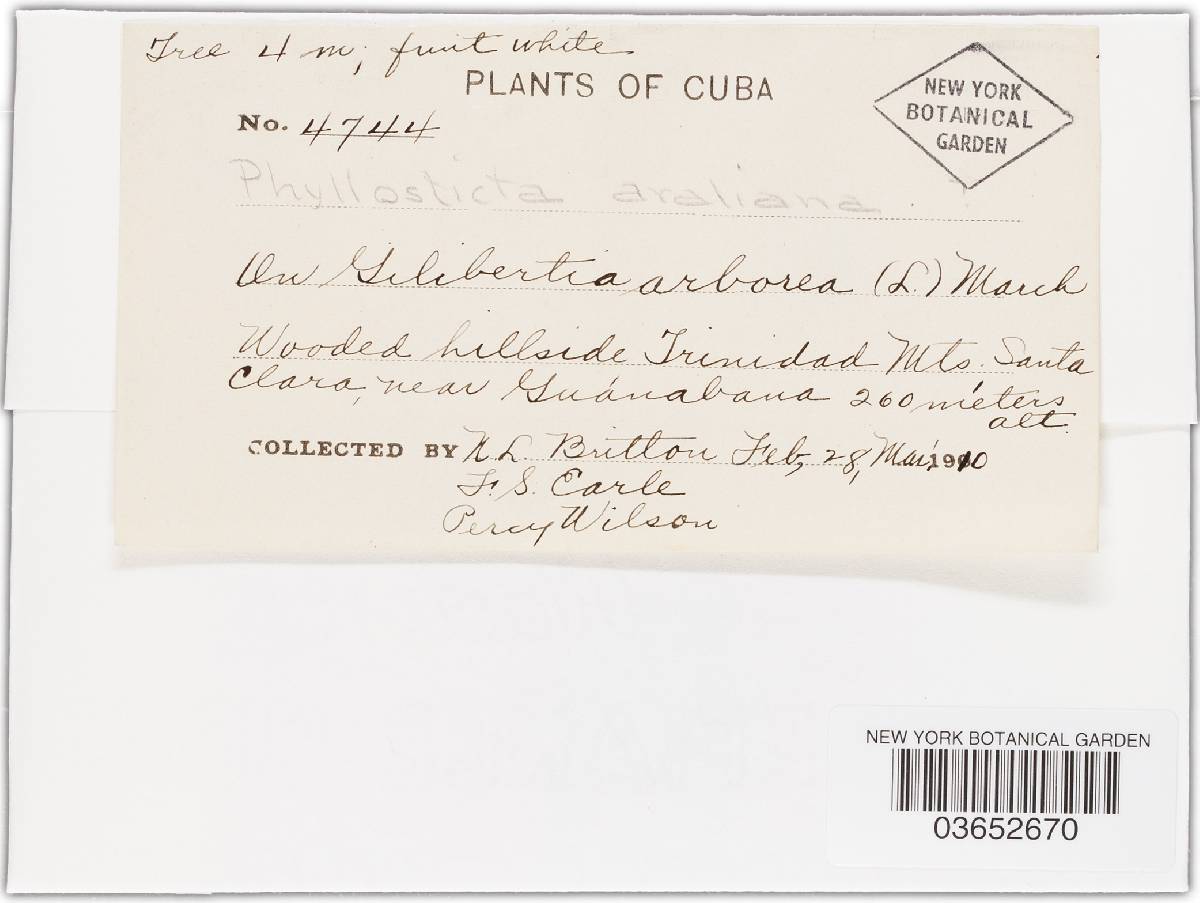 Tree 4 m; fruit white
PLANTS OF CUBA
NEW YORK
BOTANICAL
GARDEN
No. 4744
Phyllosticta araliana. ?
On Gilibertia arborea (L.) March
Wooded hillside Trinidad Mts. Santa
Clara, near Guánabana 260 meters
alt.
COLLECTED BY N L. Britton Feb, 28, Mar, 1910
F. S. Earle
Percy Wilson
NEW YORK BOTANICAL GARDEN
03652670